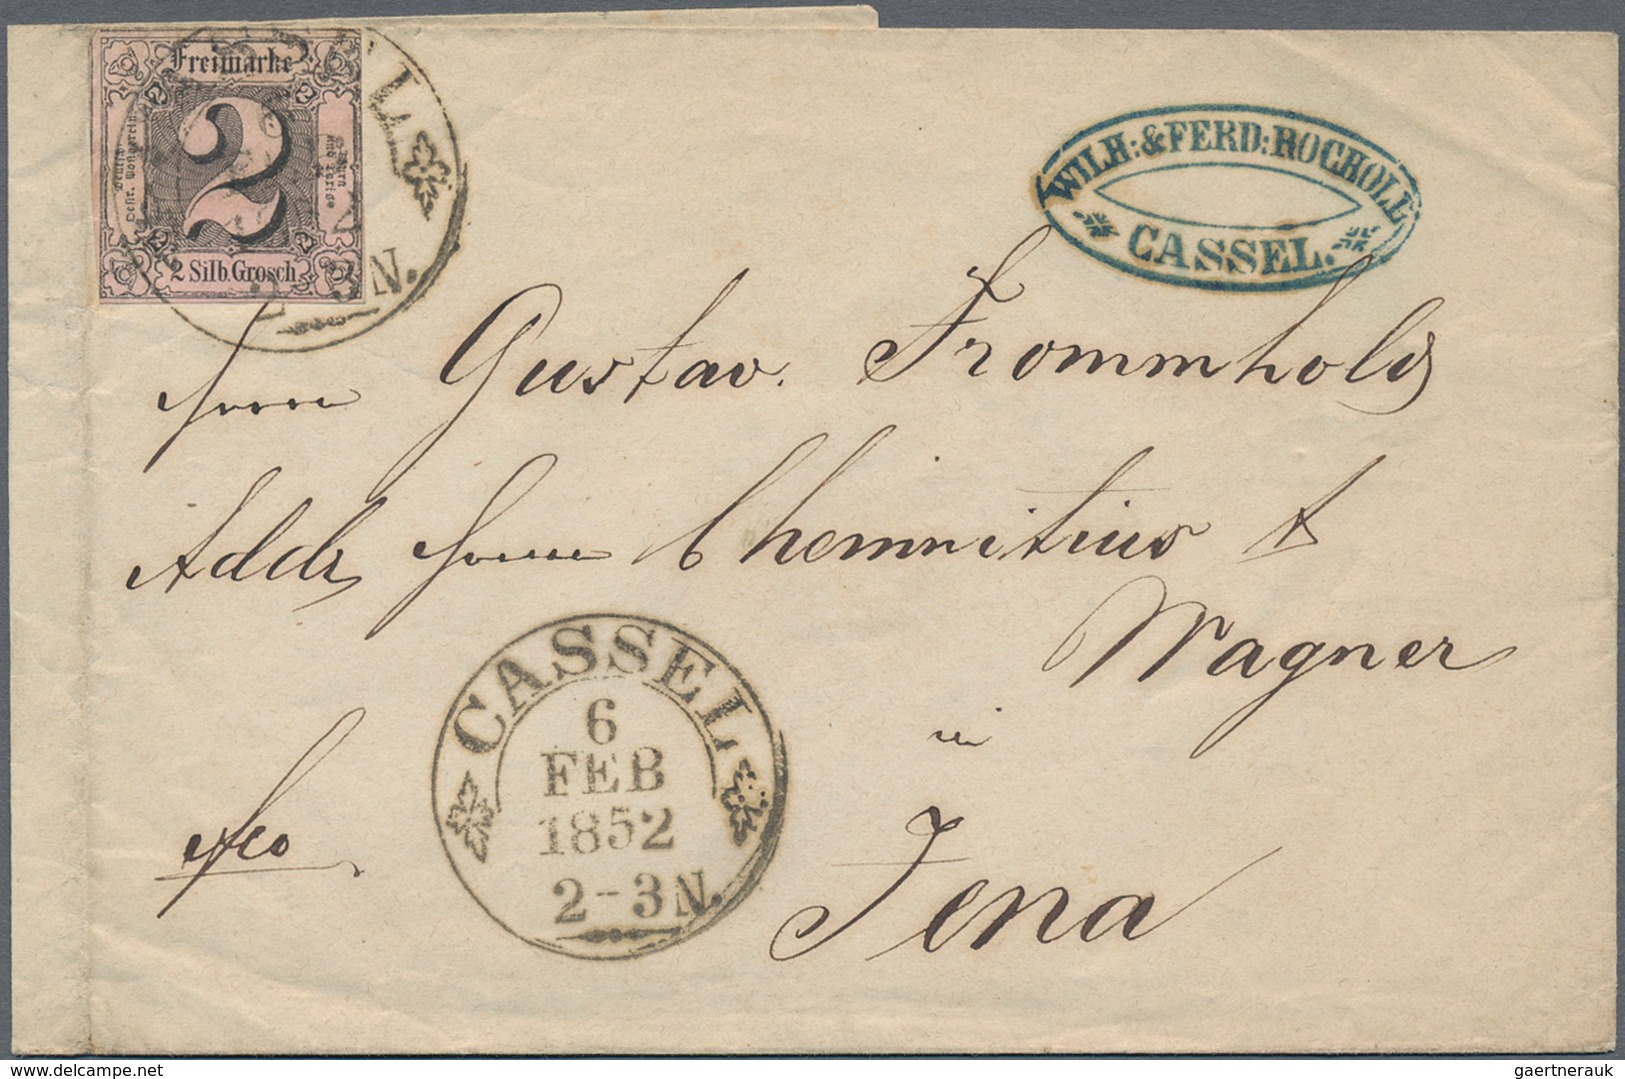 Freimarke
2
2
2
2
2
Deutsch
Oestr. Postverein
Thurn
und Taxis
2 Silb. Grosch
WILH: & FERD: ROCHOLL
CASSEL.
Herrn Gustav. Frommhold
Addr Herren Chemnitius &
Wagner
in
Jena
fco
CASSEL
6
FEB
1852
2-3N.
www.delcampe.net
gaertnerauk